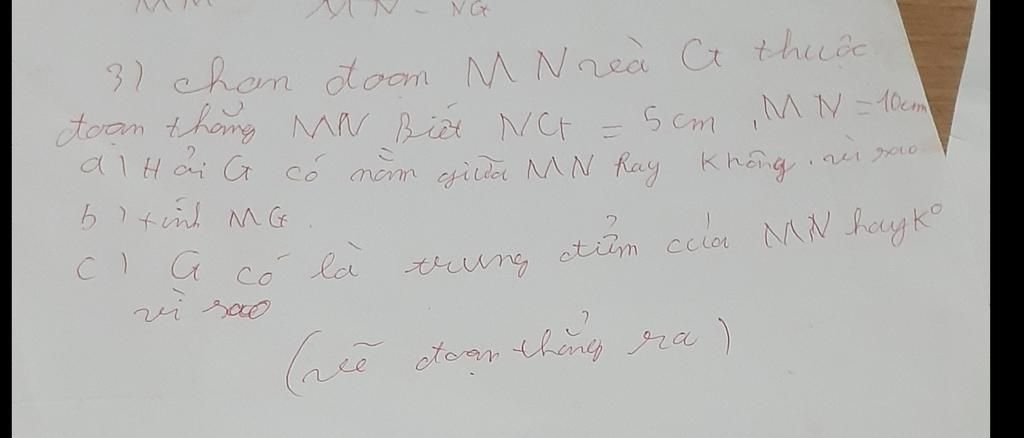 MN - NG
3) chan đoạn MN và G thuộc
đoạn thẳng MN Biết NG = 5 cm, MN = 10cm
a) Hỏi G có nằm giữa MN hay không. vì sao
b) tính MG.
c) G có là trung điểm của MN hay k°
vì sao
(vẽ đoạn thẳng ra)